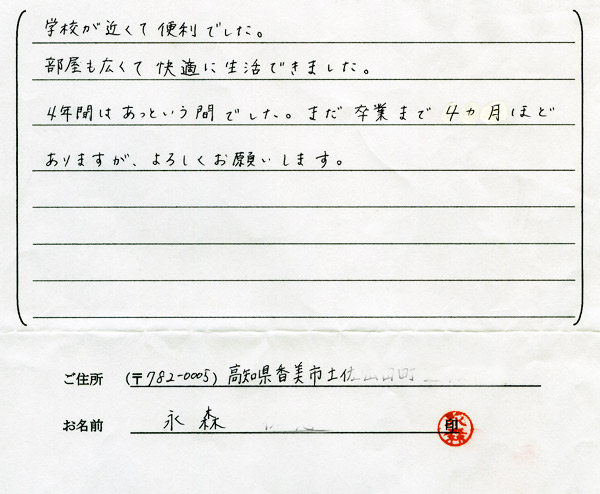 学校が近くて便利でした。
部屋も広くて快適に生活できました。
4年間はあっという間でした。まだ卒業まで4カ月ほど
ありますが、よろしくお願いします。
ご住所 (〒782-0005) 高知県香美市土佐山田町
お名前 永森 印